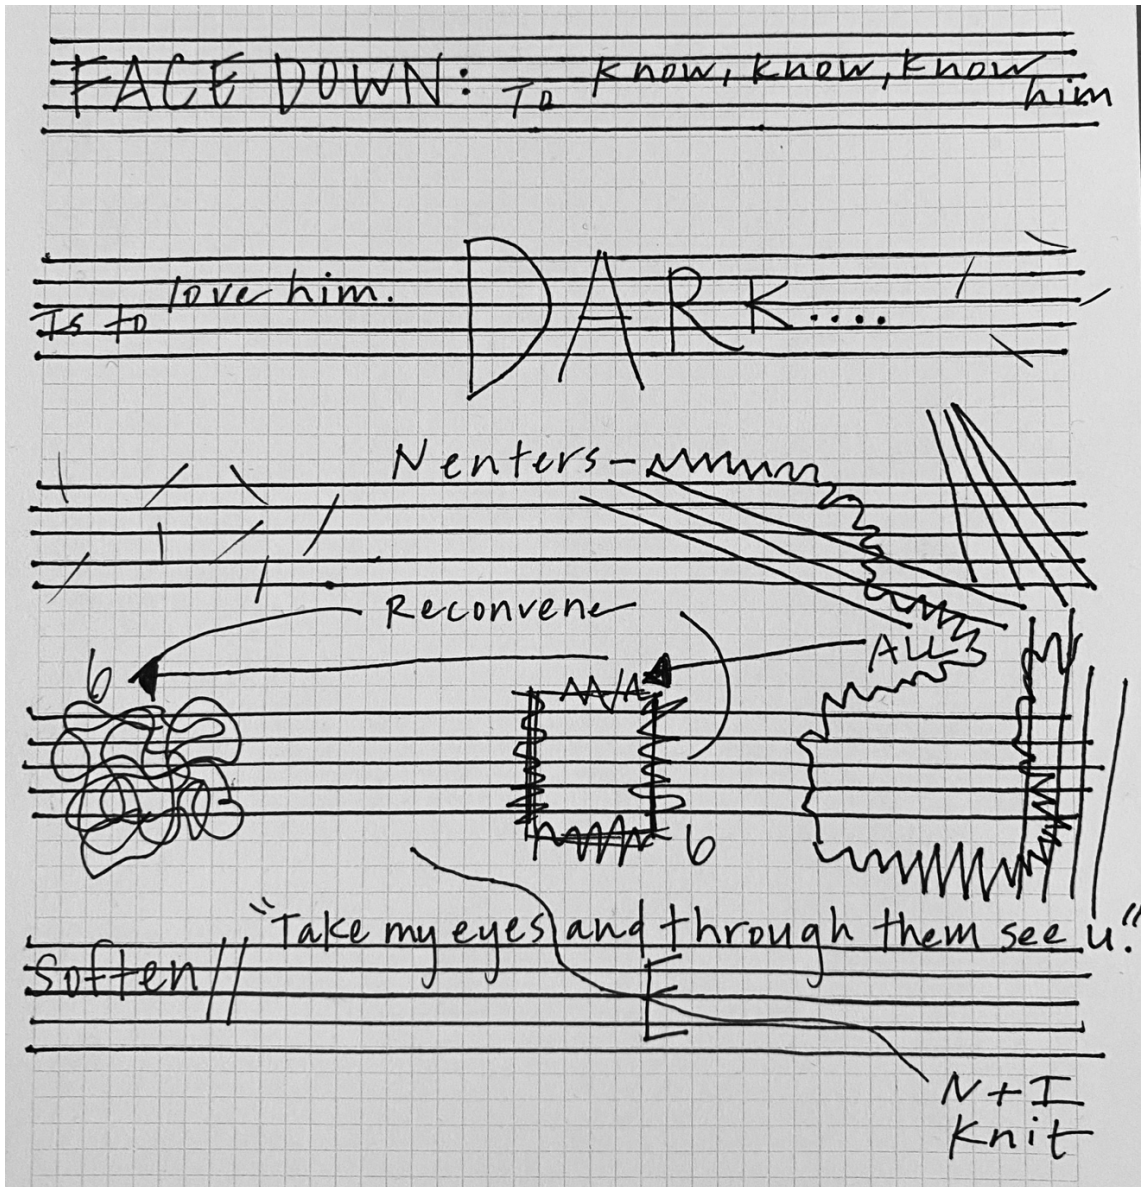 FACE DOWN: To know, know, know him
Is to love him. DARK....
N enters-
Reconvene
ALL
6
6
"Take my eyes and through them see u."
Soften//
E
N + I
Knit